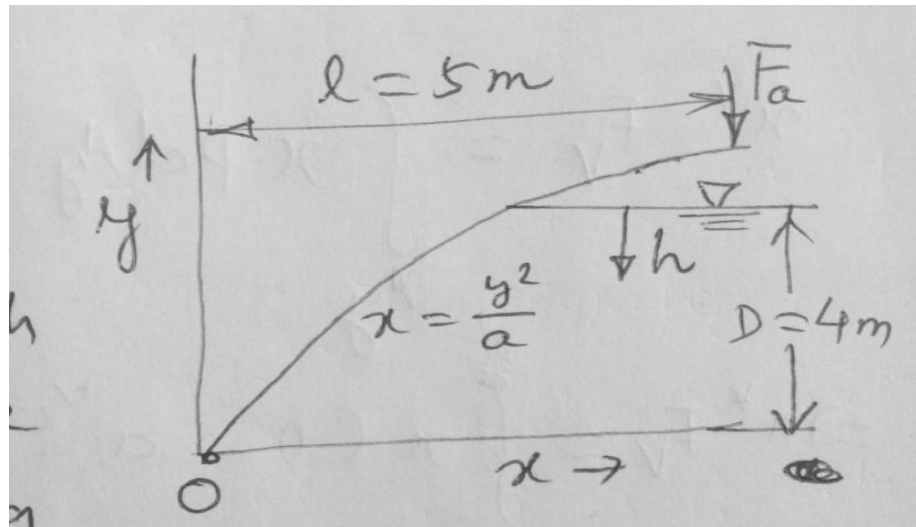 l = 5m
F̅a
y
h
x = y²/a
D = 4m
x →
O